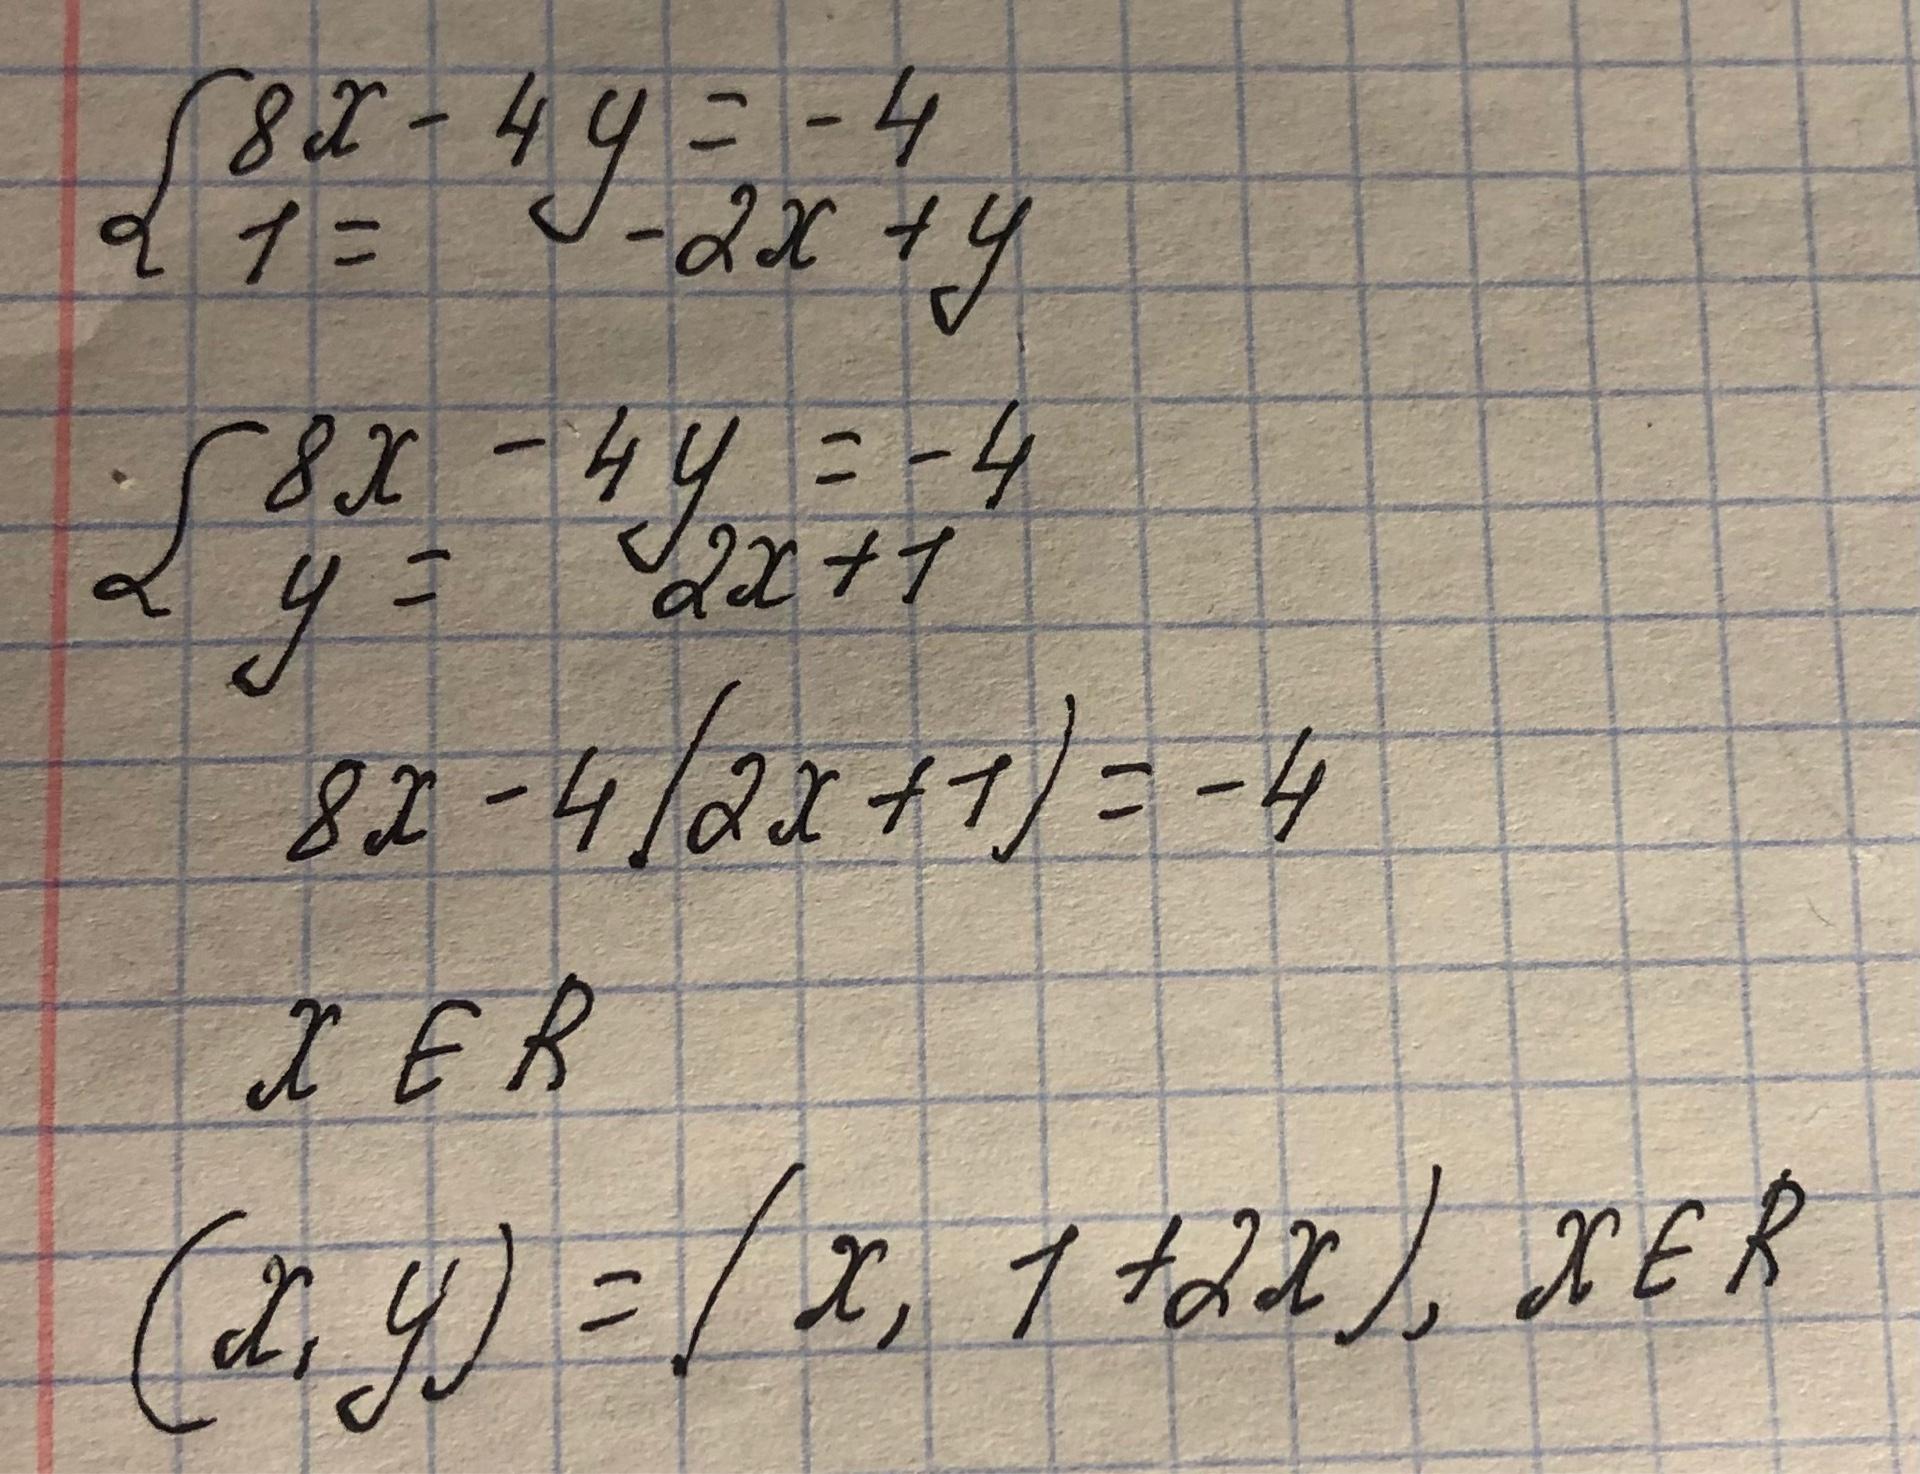 {8x - 4y = -4
1 = -2x + y
{8x - 4y = -4
y = 2x + 1
8x - 4(2x + 1) = -4
x ∈ R
(x, y) = (x, 1 + 2x), x ∈ R